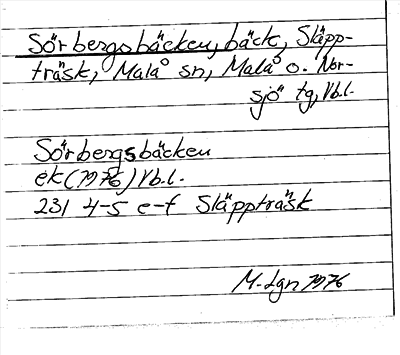 Sörbergsbäcken, bäck, Släpp-
träsk, Malå sn, Malå o. Nor-
sjö tg, Vb.l.
Sörbergsbäcken
ek (1976) Vb.l.
231 4-5 e-f Släppträsk
M-Lgn 1976